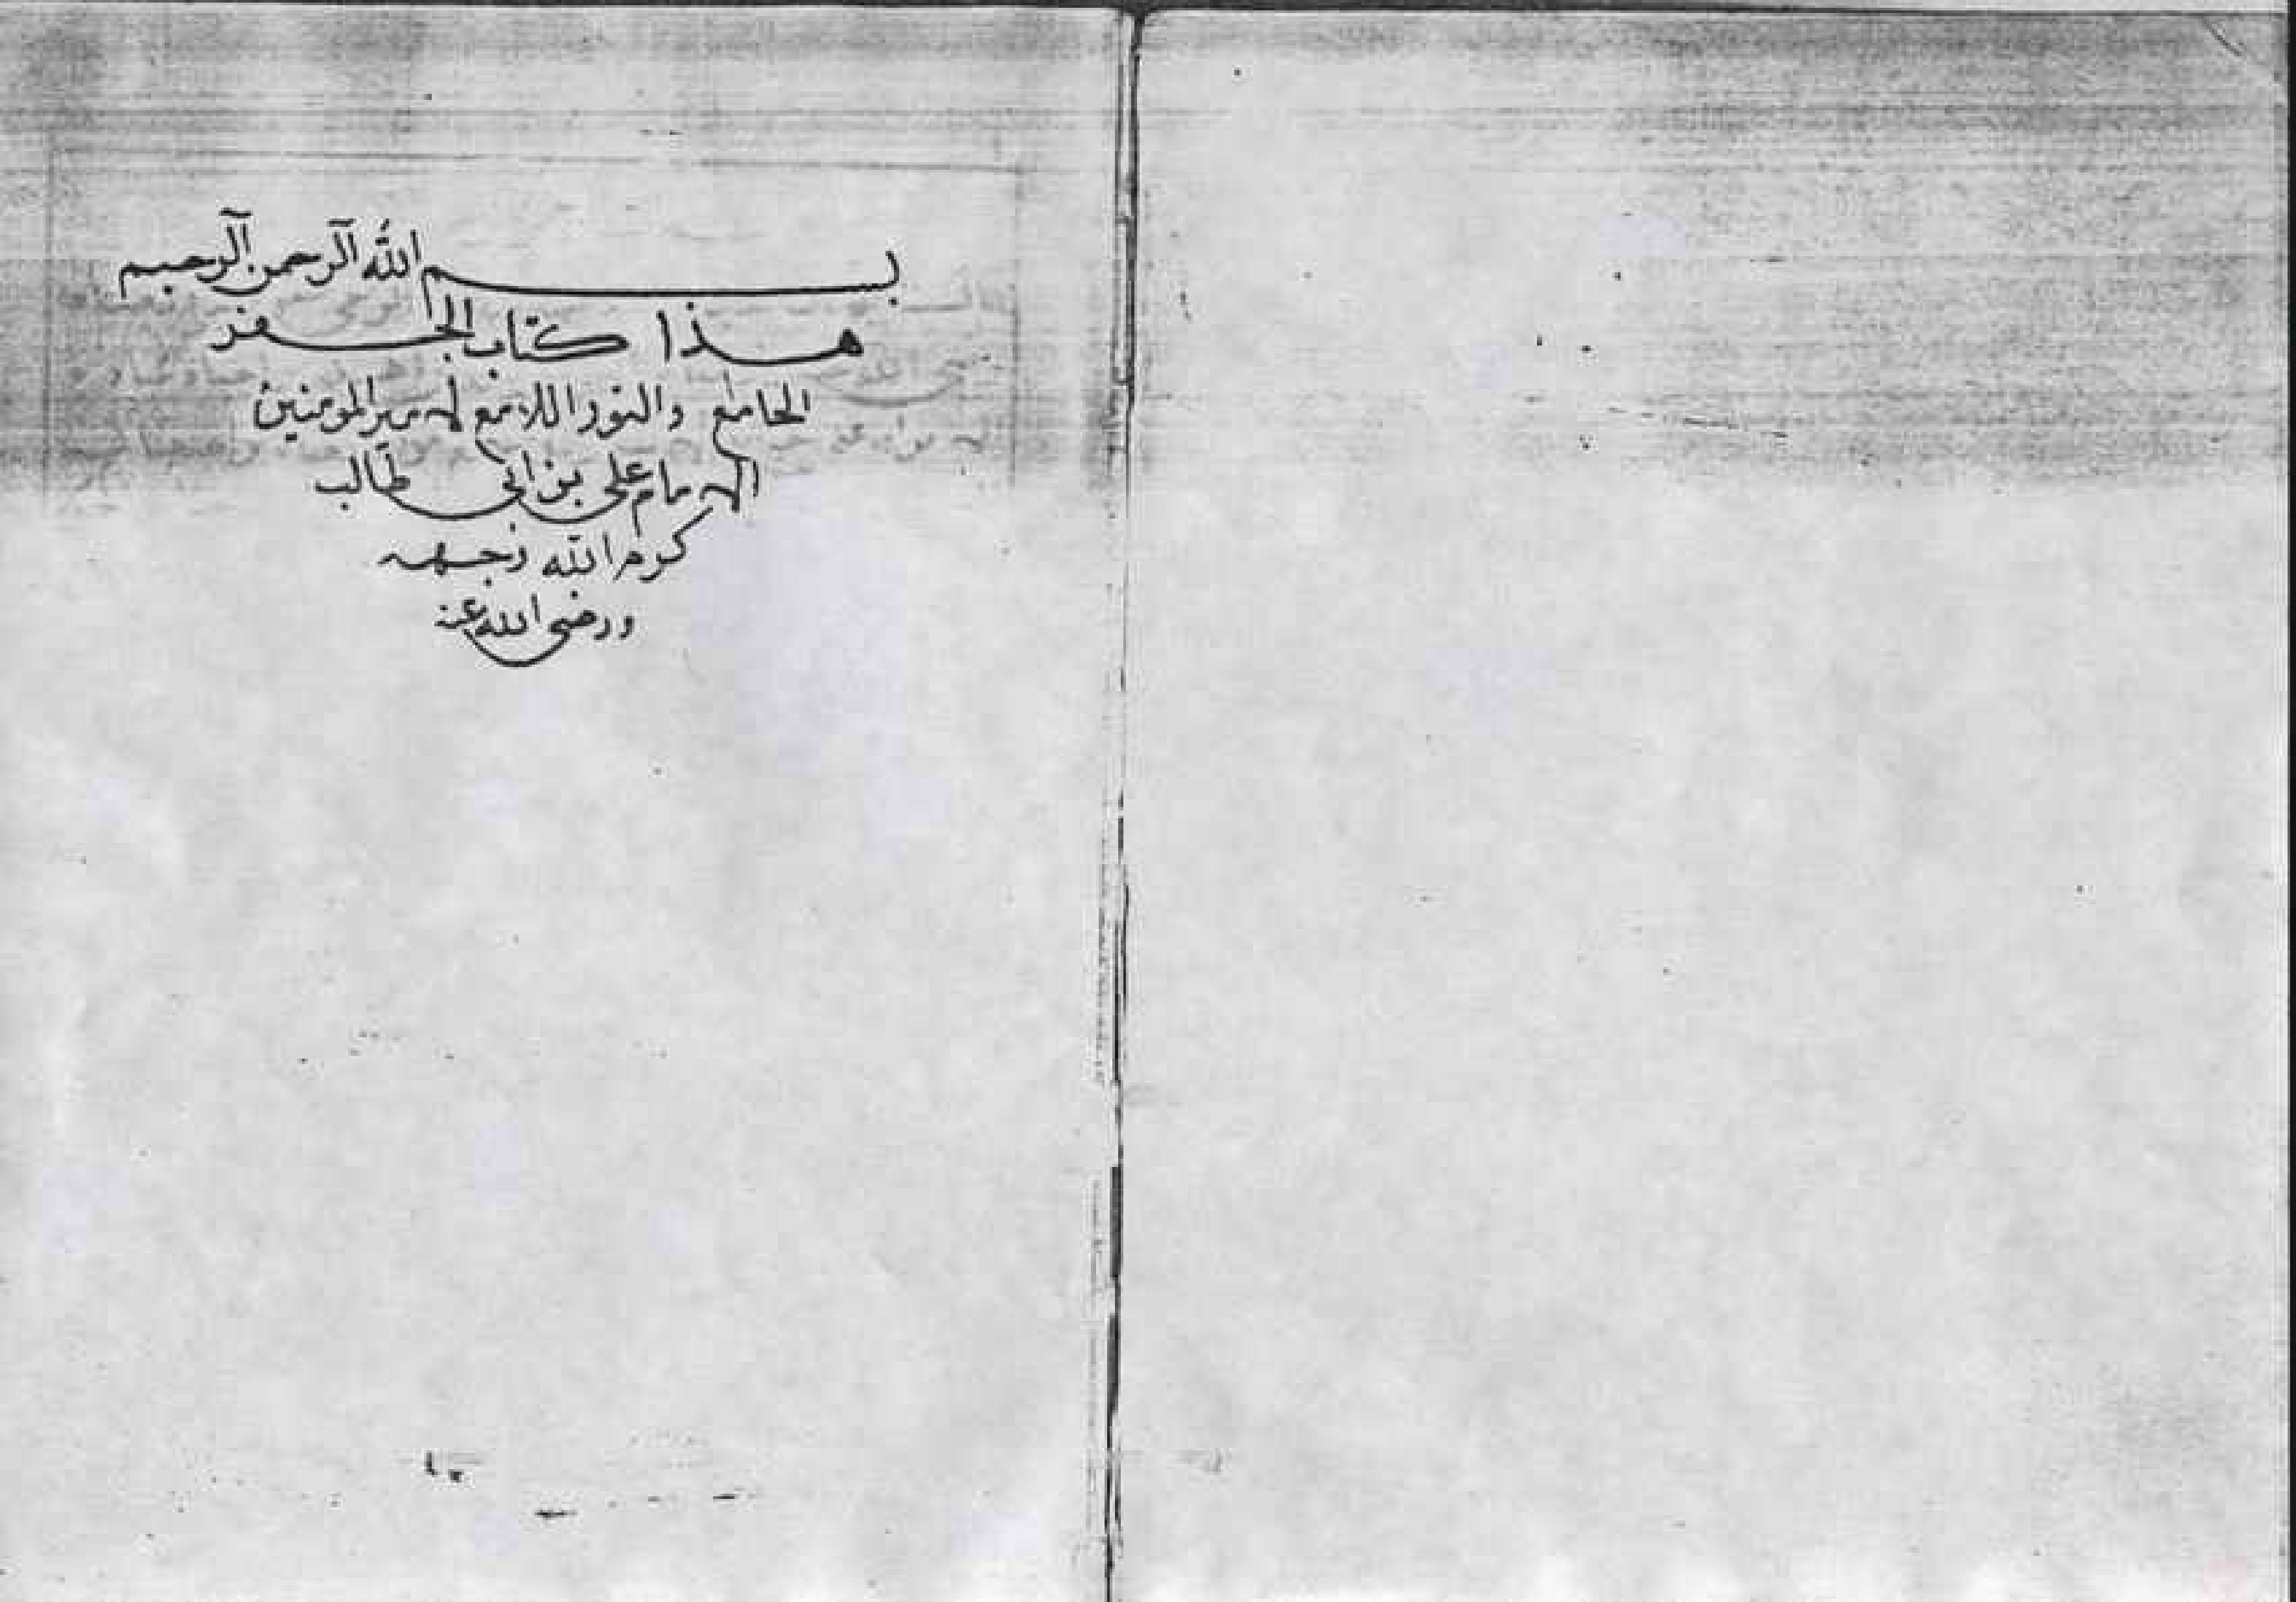 بسم الله الرحمن الرحيم
هذا كتاب الجفر
الجامع والنور اللامع لامير المومنين
الامام على بن ابى طالب
كرم الله وجهه
ورضى الله عنه